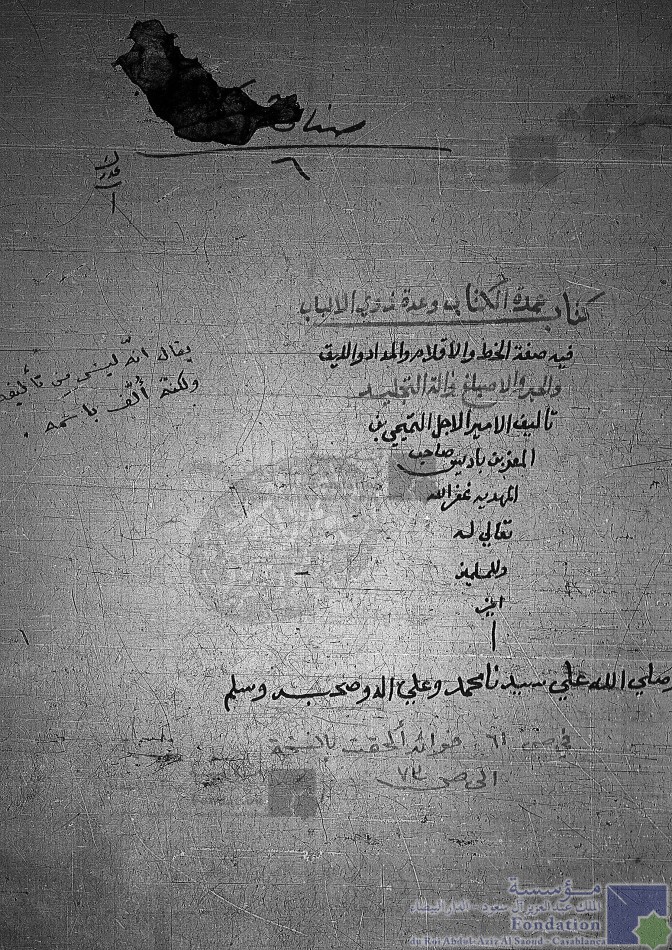 صناعة
٦
كتاب عمدة الكتاب وعدة ذوي الالباب
فيه صفة الخط والأقلام والمداد والليق
والحبر والاصباغ والة التجليد
تاليف الامير الاجل التميمي بن
المعز بن باديس صاحب
المهديه غفر الله
تعالي له
وللمسلمين
امين
يقال انه ليس من تأليفه
ولكنه أُلّف باسمه .
صلي الله علي سيدنا محمد وعلي اله وصحبه وسلم
في ص ٦١ فوائد ألحقت بالنسخة
الى ص ٧٣
مؤسسة
الملك عبد العزيز آل سعود - الدار البيضاء
Fondation
du Roi Abdul-Aziz Al Saoud - Casablanca